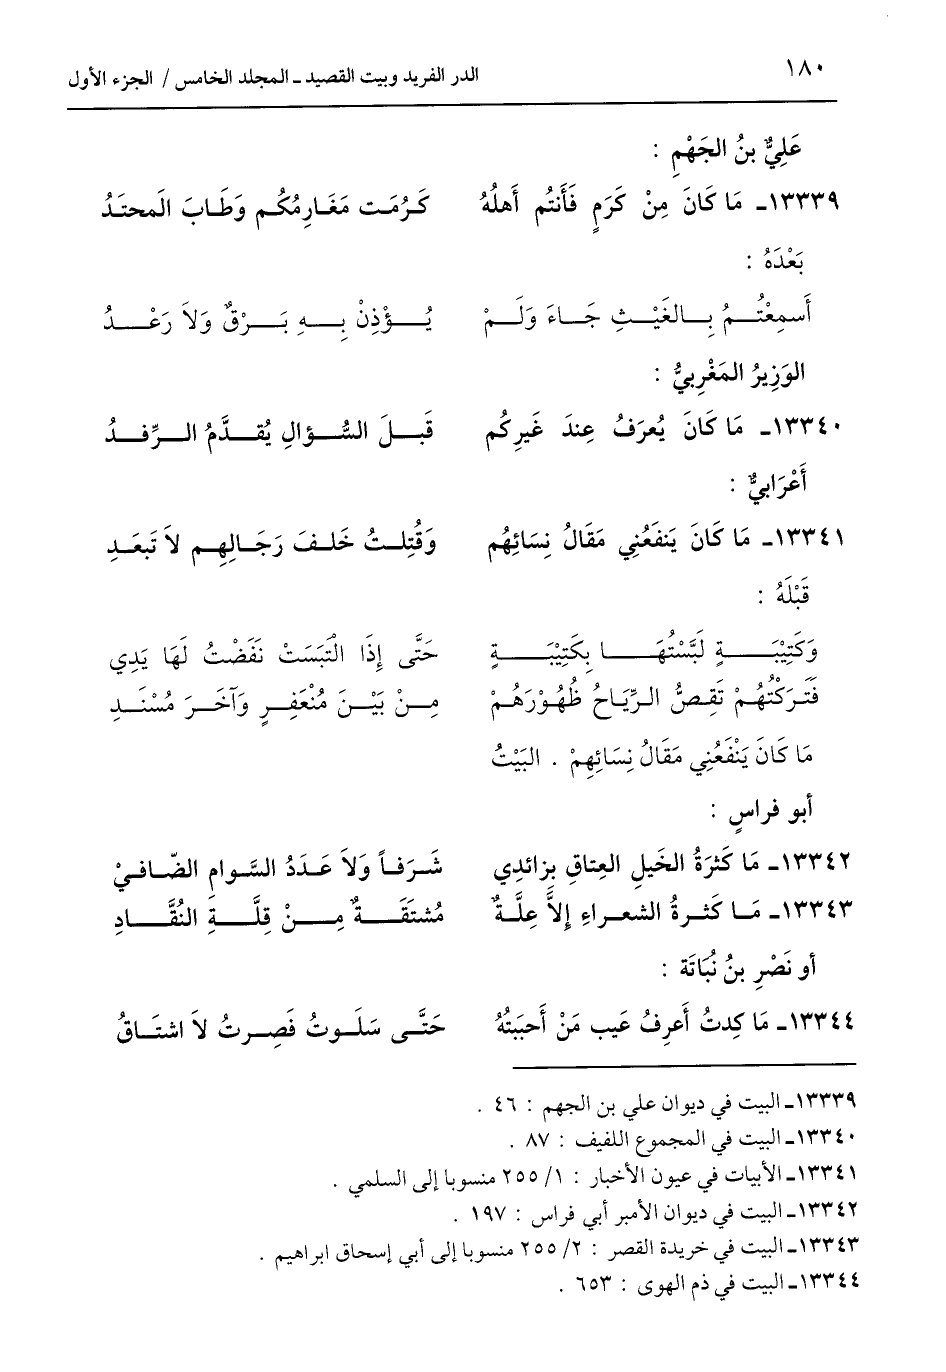 ١٨٠ الدر الفريد وبيت القصيد ـ المجلد الخامس / الجزء الأول
عَلِيُّ بنُ الجَهْمِ :
١٣٣٣٩ـ مَا كَانَ مِنْ كَرَمٍ فَأَنتُم أَهلُهُ كَرُمَت مَغَارِمُكُم وَطَابَ المَحتَدُ
بَعْدَهُ :
أَسمِعْتُمُ بِالغَيْثِ جَاءَ وَلَمْ يُؤْذِنْ بِهِ بَرْقٌ وَلاَ رَعْدُ
الوَزِيرُ المَغْرِبيُّ :
١٣٣٤٠ـ مَا كَانَ يُعرَفُ عِندَ غَيرِكُم قَبلَ السُّؤالِ يُقدَّمُ الرِّفدُ
أَعْرَابيٌّ :
١٣٣٤١ـ مَا كَانَ يَنفَعُنِي مَقَالُ نِسَائِهُم وَقُتِلتُ خَلفَ رِجَالِهِم لاَ تَبعَدِ
قَبْلَهُ :
وَكَتِيْبَةٍ لَبَّسْتُهَا بِكَتِيْبَةٍ حَتَّى إِذَا الْتَبَسَتْ نَفَضْتُ لَهَا يَدِي
فَتَرَكْتُهُمْ تَقِصُّ الرِّيَاحُ ظُهُوْرَهُمْ مِنْ بَيْنَ مُنْعَفِرٍ وَآخَرَ مُسْنَدِ
مَا كَانَ يَنْفَعُنِي مَقَالُ نِسَائِهِمْ . البَيْتُ
أبو فراسٍ :
١٣٣٤٢ـ مَا كَثرَةُ الخَيلِ العِتاقِ بزائدِي شَرَفاً وَلاَ عَدَدُ السَّوامِ الضّافيْ
١٣٣٤٣ـ مَا كَثرةُ الشعراءِ إلاَّ عِلَّةٌ مُشتَقَةٌ مِنْ قِلَّةِ النُقَّادِ
أو نَصْرِ بنُ نُبَاتَة :
١٣٣٤٤ـ مَا كِدتُ أَعرِفُ عَيب مَنْ أَحبَبتُهُ حَتَّى سَلَوتُ فَصِرتُ لاَ اشتَاقُ
١٣٣٣٩ـ البيت في ديوان علي بن الجهم : ٤٦ .
١٣٣٤٠ـ البيت في المجموع اللفيف : ٨٧ .
١٣٣٤١ـ الأبيات في عيون الأخبار : ١/ ٢٥٥ منسوبا إلى السلمي .
١٣٣٤٢ـ البيت في ديوان الأمير أبي فراس : ١٩٧ .
١٣٣٤٣ـ البيت في خريدة القصر : ٢/ ٢٥٥ منسوبا إلى أبي إسحاق ابراهيم .
١٣٣٤٤ـ البيت في ذم الهوى : ٦٥٣ .